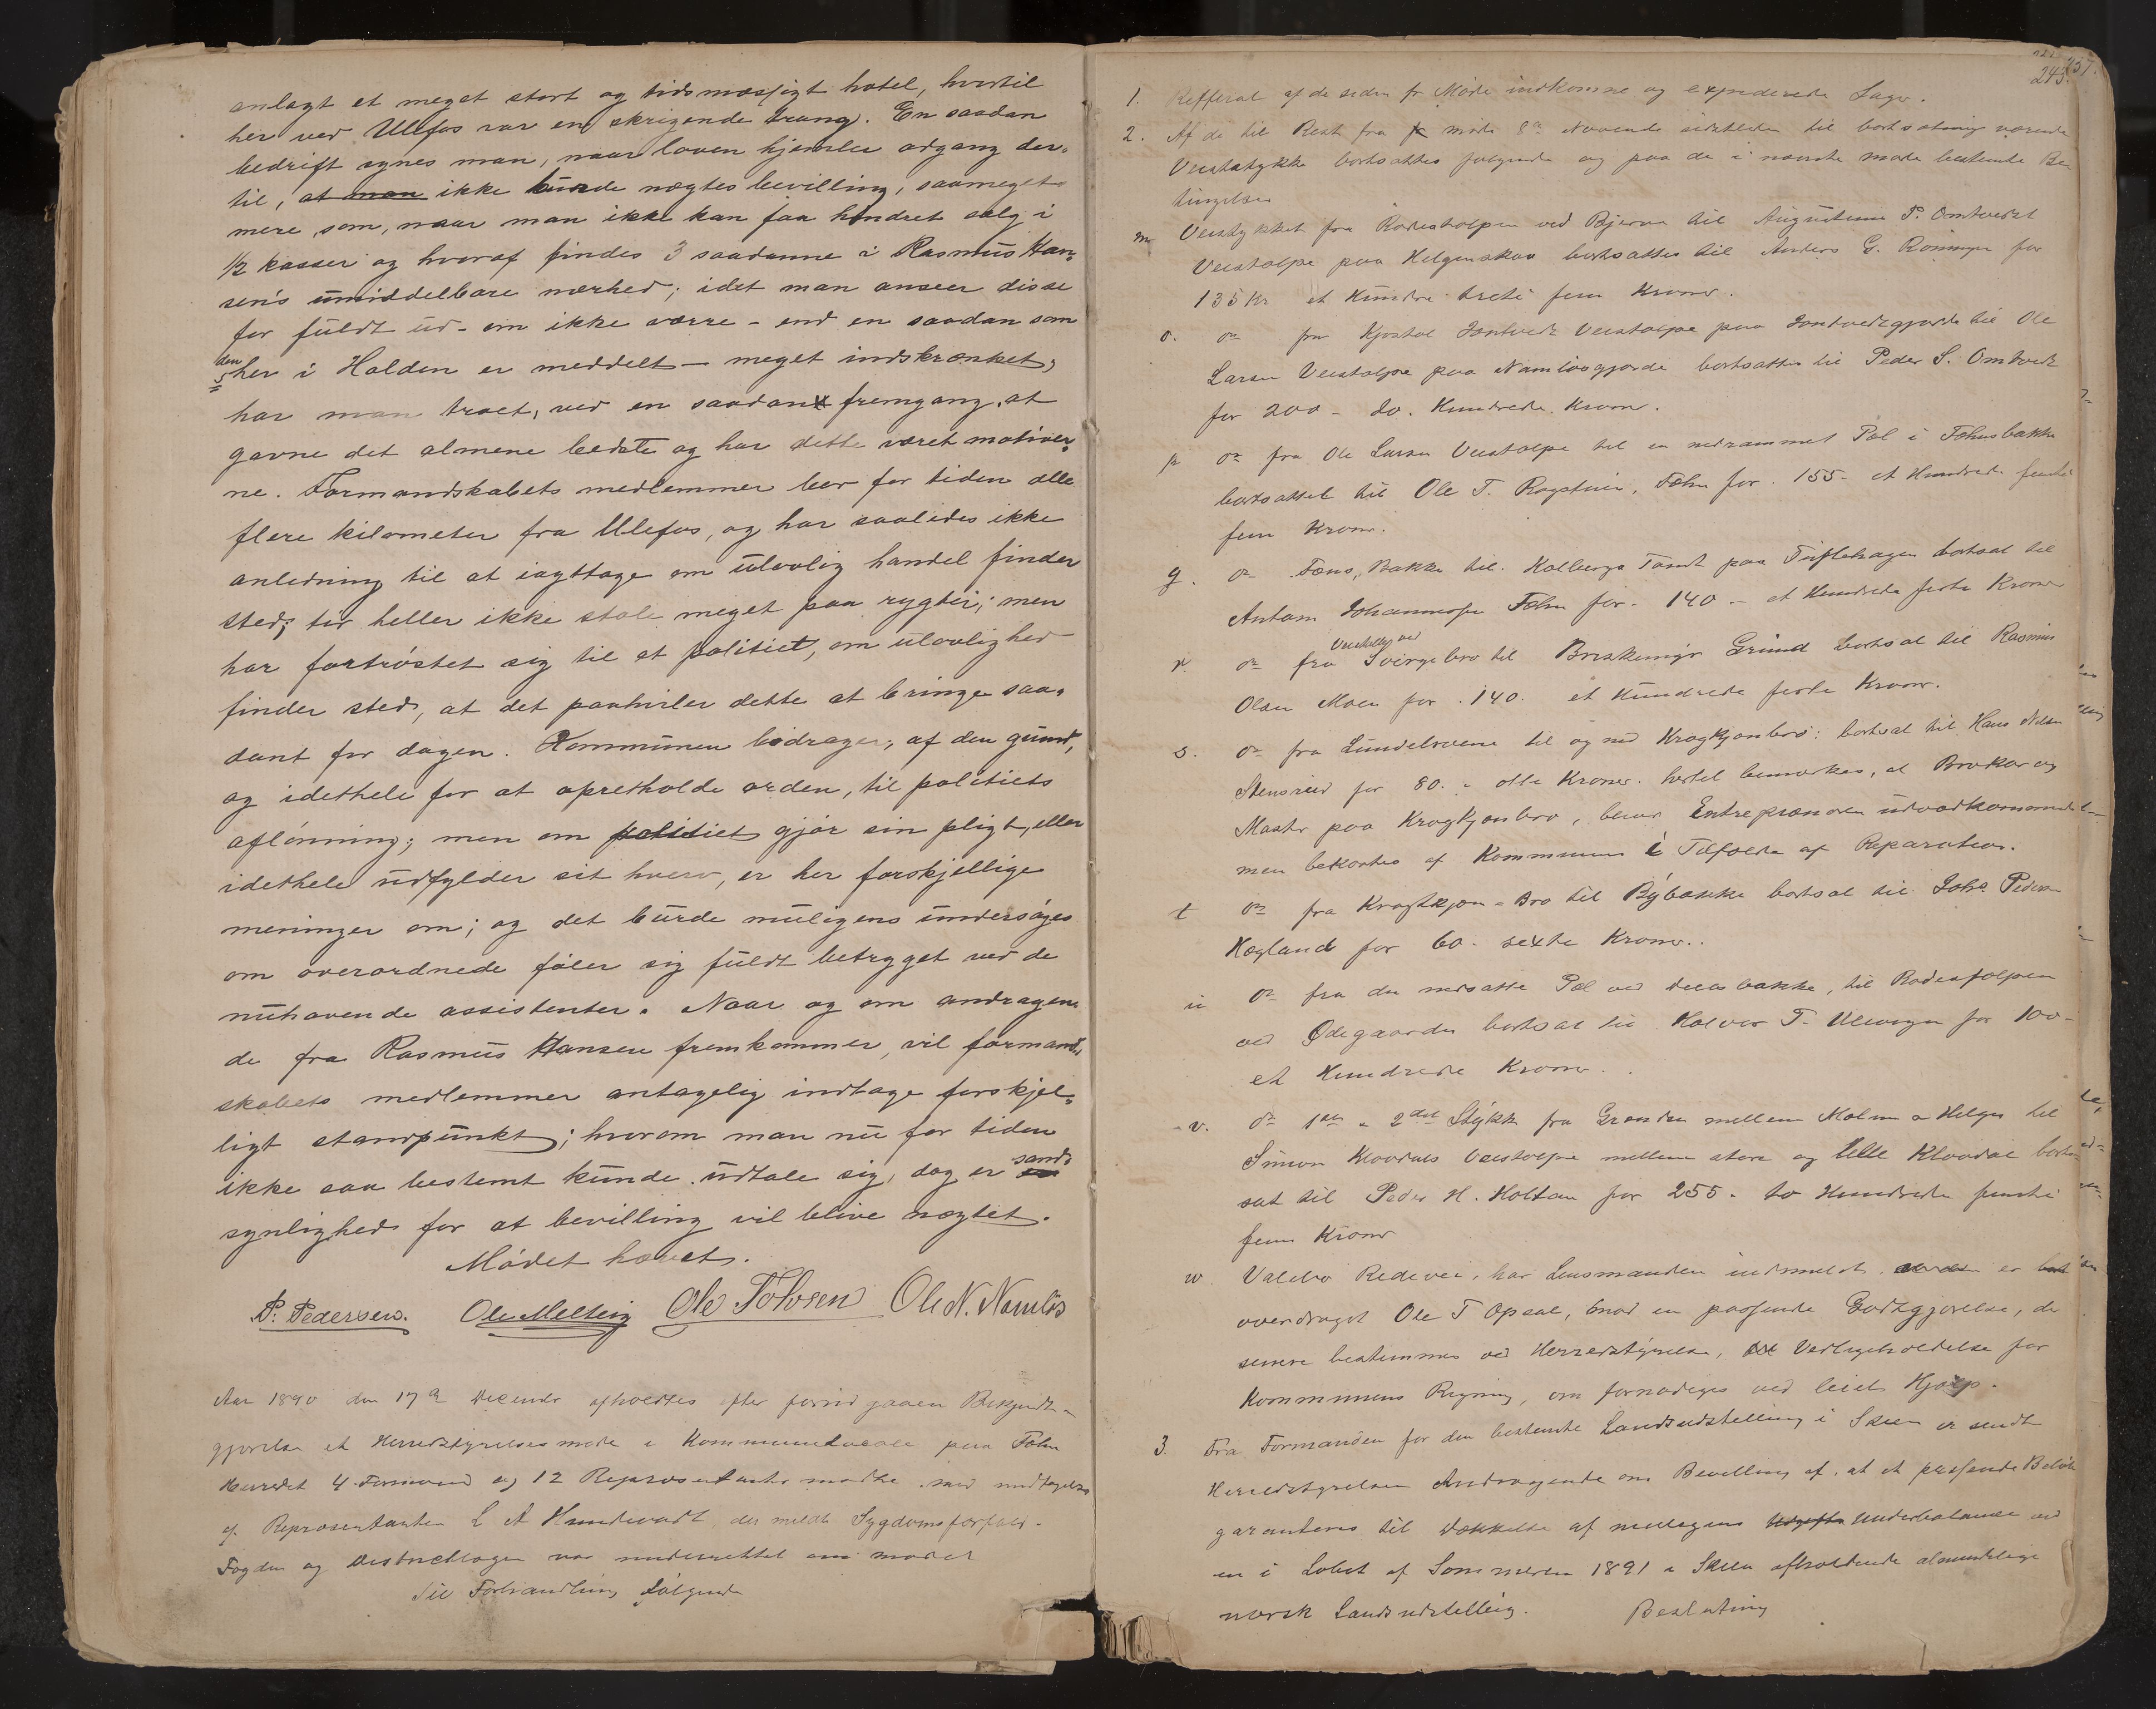 anlagt et meget stort og tidsmæsjigt hotel, hvortil
her ved Ulefos var en skrigende trang. En saadan
bedrift synes man, naar loven hjemler adgang der-
til, at man ikke burde nægtes bevilling, saameget
mere, som, naar man ikke kan faa hindret salg i
1/2 kasser og hvoraf findes 3 saadanne i Rasmus Han-
sen's umiddelbare nærhed; idet man anseer disse
for fuldt ud - om ikke værre - end en saadan som
den her i Holden er meddelt - meget indskrænket,
har man troet, ved en saadan fremgang, at
gavne det almene bedste og har dette været motiver-
ne. Formandskabets medlemmer bor for tiden alle
flere kilometer fra Ulefos, og har saaledes ikke
anledning til at iagttage om ulovlig handel finder
sted; tør heller ikke stole meget paa rygter; men
har fortrøstet sig til at politiet, om ulovlighed
finder sted, at det paahviler dette at bringe saa-
dant for dagen. Kommunen bidrager, af den grund,
og idethele for at opretholde orden, til politiets
aflønning; men om politiet gjør sin pligt, eller
idethele udfylder sit hverv, er her forskjellige
meninger om; og det burde muligens undersøges
om overordnede føler sig fuldt betrygget ved de
nuhavende assistenter. Naar og om andragen-
de fra Rasmus Hansen fremkommer, vil formand-
skabets medlemmer antagelig indtage forskjel-
ligt standpunkt; hvorom man nu for tiden
ikke saa bestemt kunde udtale sig, dog er sand-
synlighed for at bevilling vil blive nægtet.
Mødet hævet.
P. Pedersen. Ole Melteig Ole Tolvsen Ole N. Namløs
Aar 1890 den 17de December afholdtes efter forudgaaen Bekjendt-
gjørelse et Herredstyrelsesmøde i Kommunelocale paa Fæhn
Herredet 4 Formænd og 12 Repræsentanter mødte, med undtagelse
af Repræsentanten L A Hundevadt, der meldt Sygdomsforfald.
Fogden og Districtslægen var underrettet om mødet
Til Forhandling følgende
243.
1. Refferat af de siden fr Møde indkomne og expederede Sager.
2. Af de til Rest fra møde 8de November sidstleden til bortsætning værende
Veistykke bortsattes følgende og paa de i nævnte møde bestemte Be-
tingelser
Veistykket fra Rodestolpen ved Bjerva til Augustinus P. Omtvedt
Veistolpe paa Helgenskaa bortsattes til Anders G. Rønningen for
135 Kr et Hundre treti fem Kroner.
o. do fra Kjøstal Omtvedt Veistolpe paa Omtvedtgjorde til Ole
Larsen Veistolpe paa Namløsgjorde bortsattes til Peder S. Omtvedt
for 200 - To Hundrede Kroner.
p do fra Ole Larsen Veistolpe til en nedrammet Pæl i Fæhnsbakke
bortsattes til Ole T. Rogstuen, Fæhn for 155 - et Hundrede femti
fem Kroner.
q. do Fæns Bakke til Kolbergs Tomt paa Tuftehagen bortsat til
Antom Johannesen Fæhn for 140 - et Hundrede førte Kroner
r. do fra Veistolpe ved Sveigebro til Grund bortsat til Rasmus
Olsen Moen for 140. et Hundrede førte Kroner.
s. do fra Lundebroene til og med Kragkjønbro: bortsat til Hans Nilsen
Stensrud for 80. - otte Kroner. hertil bemærkes, at Brokar og
Master paa Kragkjønbro, bliver Entreprenøren uvedkommende
men bekostes af Kommunen i Tilfælde af Reparation.
t do fra Kragkjøn-Bro til Bybakke bortsat til Johs Pedersen
Hægland for 60. sexte Kroner.
u do fra den nedsatte Pæl ved bakke, til Rodestolpen
ved Ødegaarden bortsat til Halvor T. Ulevogen for 100 -
et Hundrede Kroner.
v. do 1ste & 2det Stykke fra Grændsen mellem Molm & Helgen til
Simon Klovdals Veistolpe mellem store og lille Klovdal bort-
sat til Peder H. Holtan for 255. to Hundrede femti
fem Kroner
w Valebo Rodevei, har Lensmanden indmeldt er
overdraget Ole T Opsal, imod en passende Godtgjørelse, der
senere bestemmes ved Herredstyrelse, Vedligeholdelse for
Kommunens Regning, om fornødiges ved leiet Hjælp.
3. Fra Formanden for den bestemte Landsudstilling i Skien er sendt
Herredstyrelsen Andragende om Bevilling af, at et passende Beløb
garanteres til Dækkelse af muligens Underbalance ved
en i Løbet af Sommeren 1891 i Skien afholdende almindelige
norsk Landsudstilling. Beslutning